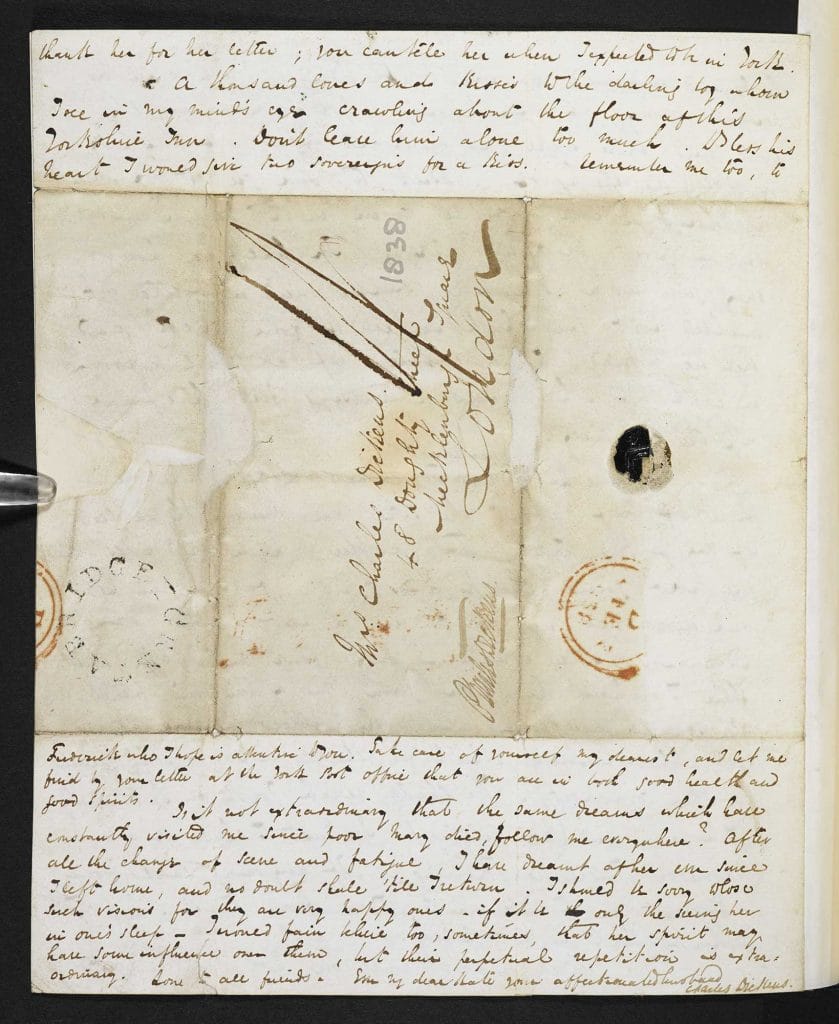 thank her for her letter; you can tell her when I expected to be in York.
A thousand loves and kisses to the darling boy whom
I see in my mind's eye crawling about the floor of this
Yorkshire Inn. Don't leave him alone too much. Bless his
heart I would give two sovereigns for a kiss. Remember me too, to
1838
Mrs Charles Dickens.
48 Doughty Street
Mecklenburgh Square
London
Charles Dickens.
BRIDGE
Frederick who I hope is attentive to you. Take care of yourself my dearest, and let me
find by your letter at the York Post office that you are in both good health and
good spirits.
Is it not extraordinary that the same dreams which have
constantly visited me since poor Mary died, follow me everywhere? After
all the change of scene and fatigue, I have dreamt of her ever since
I left home, and no doubt shall 'till I return. I should be sorry to lose
such visions for they are very happy ones – if it be only the seeing her
in one's sleep – I would fain believe too, sometimes, that her spirit may
have some influence over them, but their perpetual repetition is extra-
ordinary. Love to all friends – Ever my dear Kate your affectionate husband
Charles Dickens.